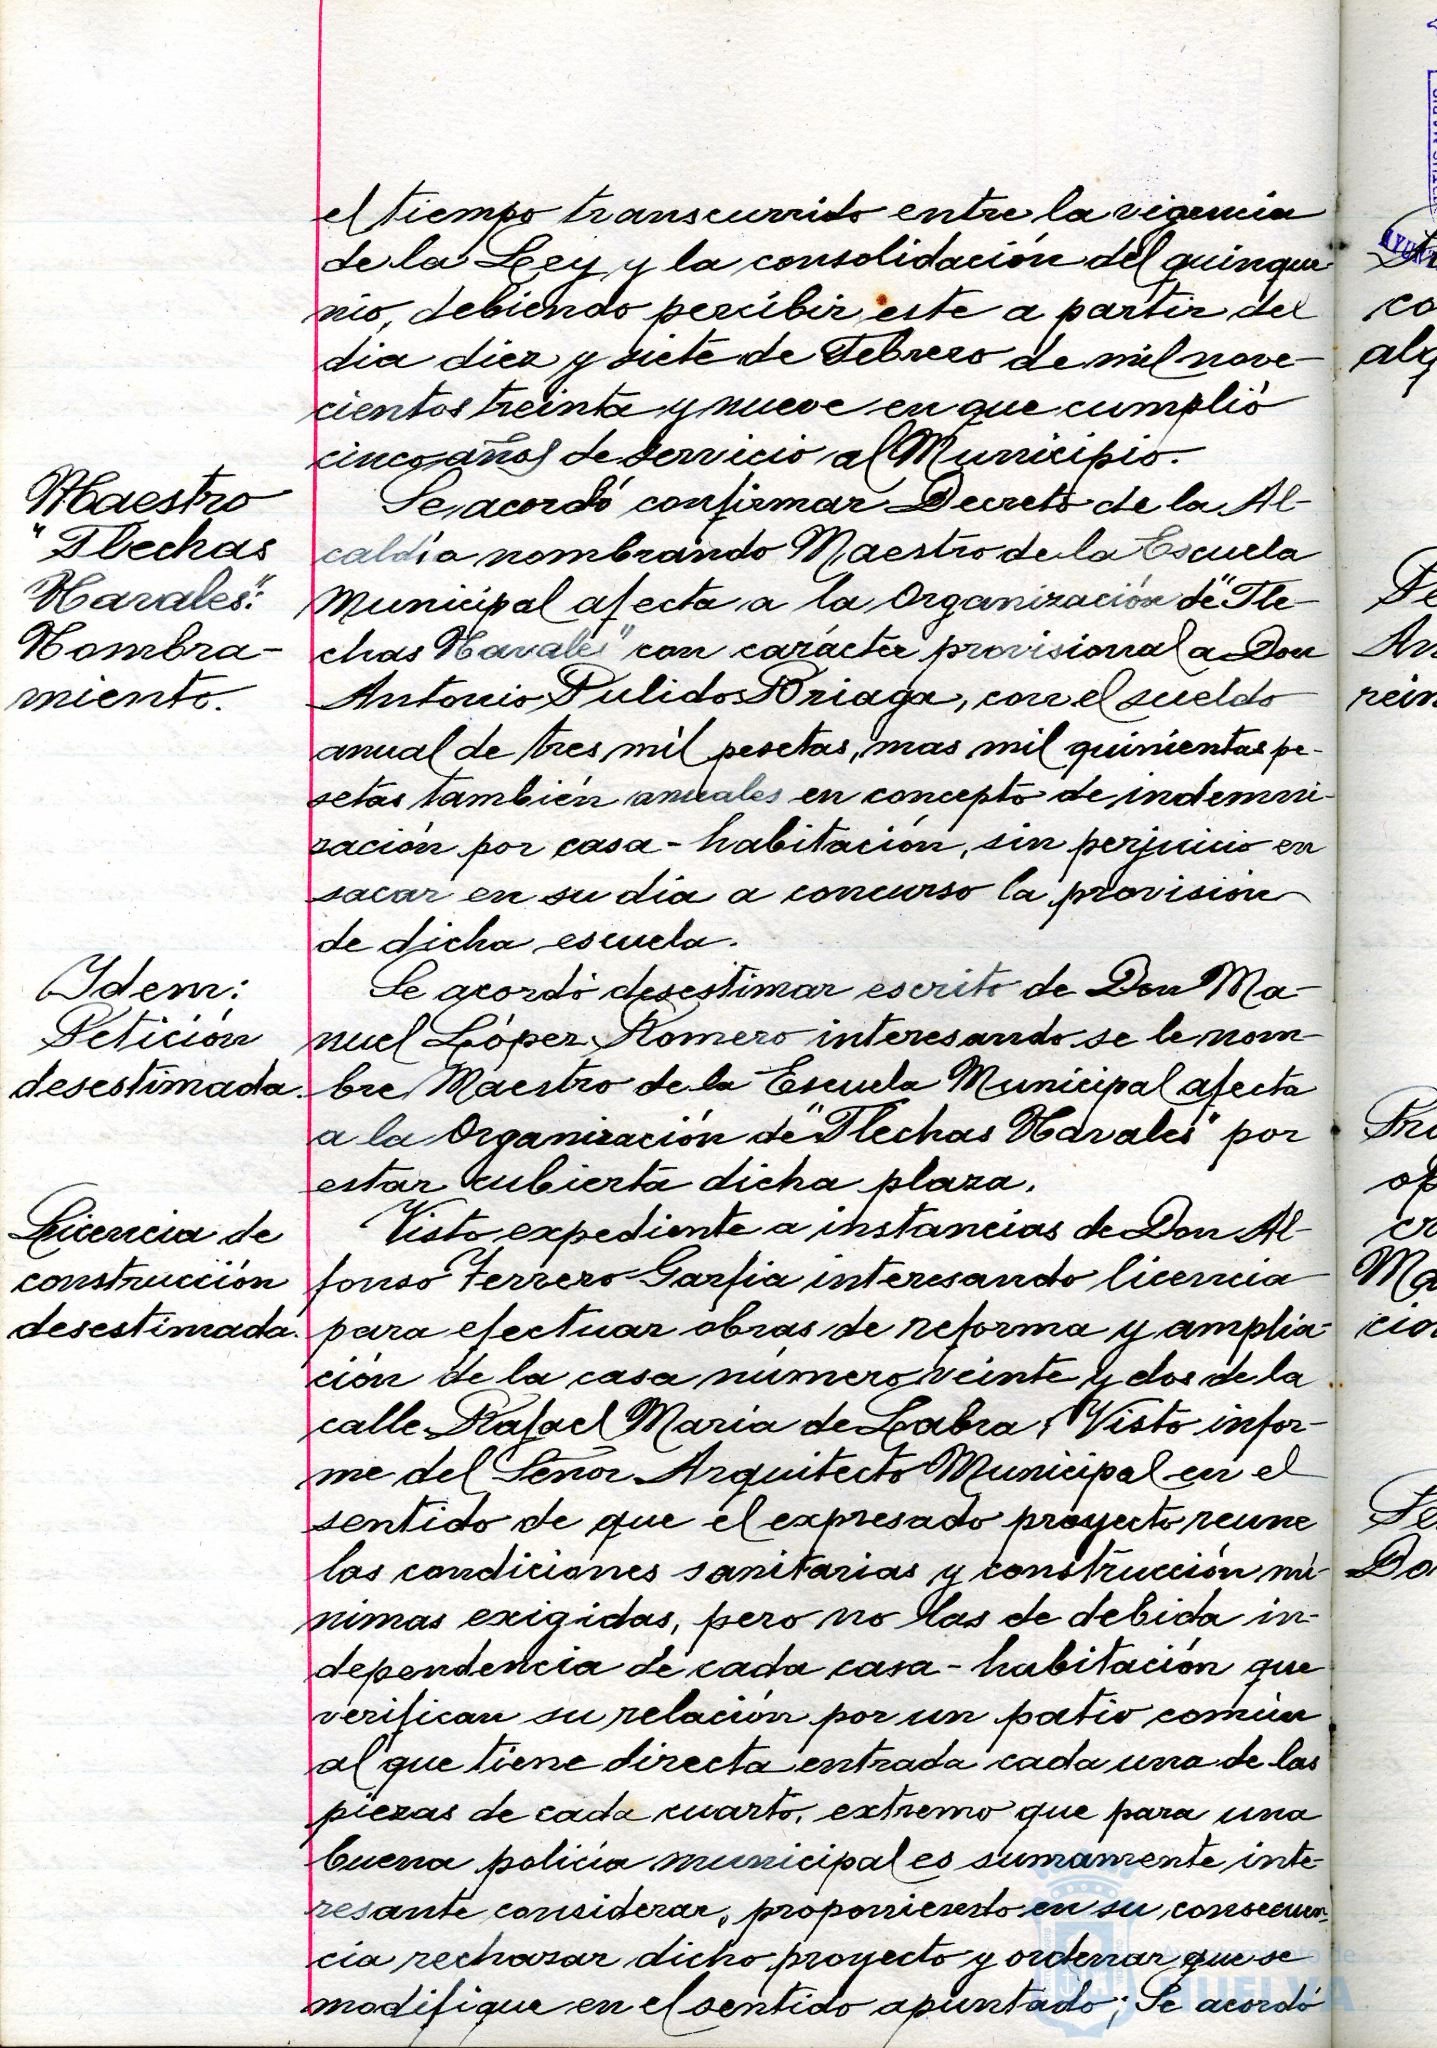 el tiempo transcurrido entre la vigencia
de la Ley y la consolidación del quinque
nio, debiendo percibir este a partir del
dia diez y siete de Febrero de mil nove-
cientos treinta y nueve en que cumplió
cinco años de servicio al Municipio.
Maestro
"Flechas
Navales":
Nombra-
miento.
Se acordó confirmar Decreto de la Al-
caldía nombrando Maestro de la Escuela
Municipal afecta a la Organización de "Fle-
chas Navales" con carácter provisional a Don
Antonio Pulido Briaga, con el sueldo
anual de tres mil pesetas, mas mil quinientas pe-
setas también anuales en concepto de indemni-
zación por casa-habitación, sin perjuicio en
sacar en su dia a concurso la provisión
de dicha escuela.
Idem:
Petición
desestimada.
Se acordó desestimar escrito de Don Ma-
nuel López Romero interesando se le nom-
bre Maestro de la Escuela Municipal afecta
a la Organización de "Flechas Navales" por
estar cubierta dicha plaza.
Licencia de
construcción
desestimada.
Visto expediente a instancias de Don Al-
fonso Ferrero Garfia interesando licencia
para efectuar obras de reforma y amplia-
ción de la casa número veinte y dos de la
calle Rafael Maria de Labra; Visto infor-
me del Señor Arquitecto Municipal en el
sentido de que el expresado proyecto reune
las condiciones sanitarias y construcción mí-
nimas exigidas, pero no las de debida in-
dependencia de cada casa-habitación que
verifican su relación por un patio común
al que tiene directa entrada cada una de las
piezas de cada cuarto, extremo que para una
buena policía municipal es sumamente inte-
resante considerar, proponiendo en su consecuen-
cia rechazar dicho proyecto y ordenar que se
modifique en el sentido apuntado; Se acordó
Ayuntamiento de
HUELVA